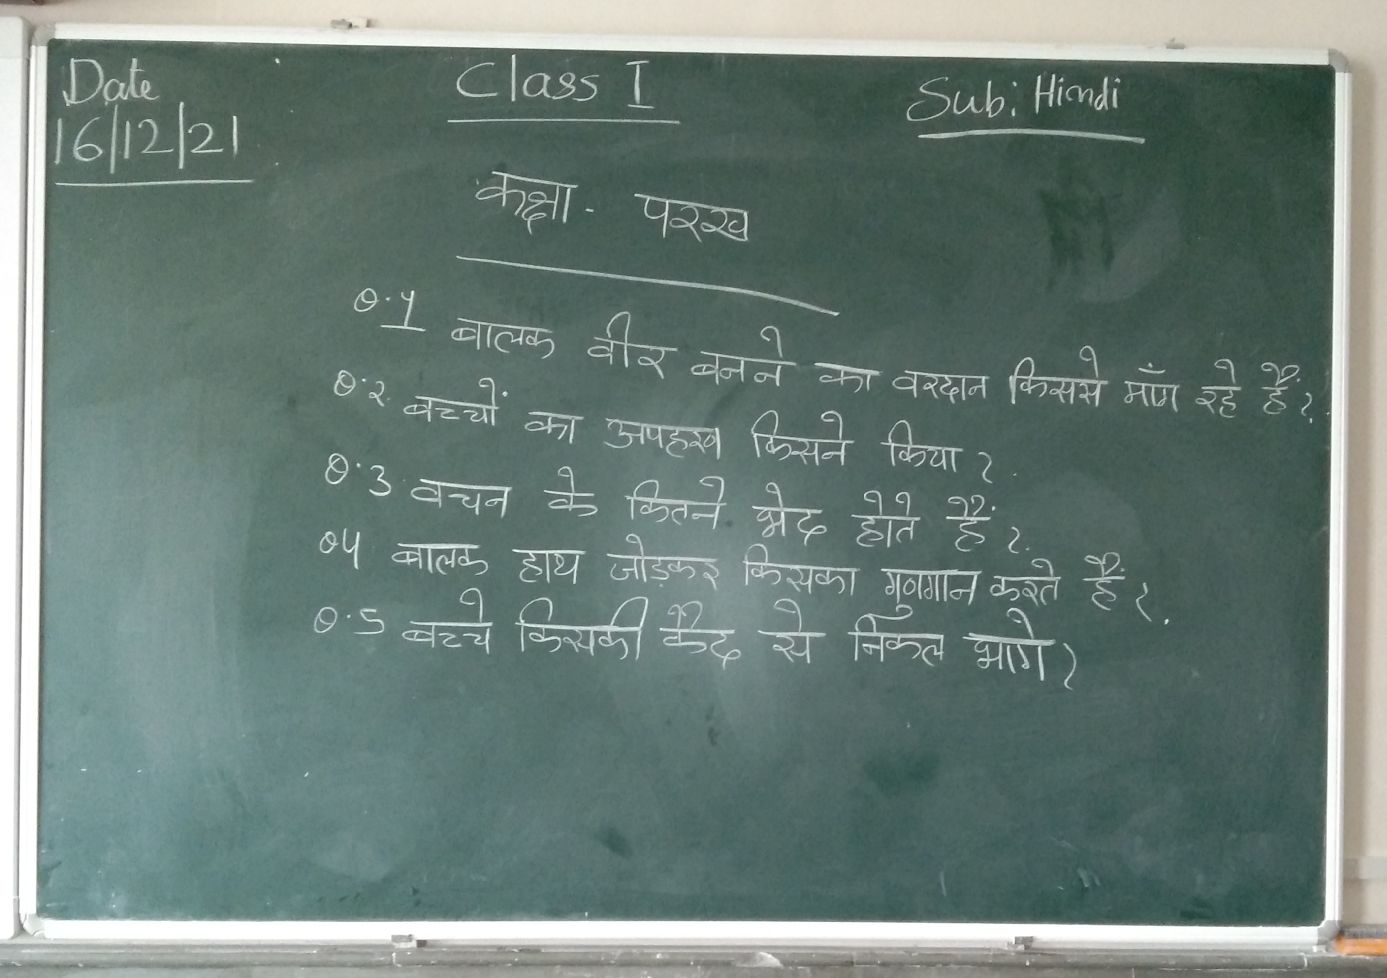 Date Class I Sub: Hindi
16/12/21
कक्षा - परख
Q.1 बालक वीर बनने का वरदान किससे माँग रहे हैं?
Q.2 बच्चों का अपहरण किसने किया?
Q.3 वचन के कितने भेद होते हैं?
Q4 बालक हाथ जोड़कर किसका गुणगान करते हैं?
Q.5 बच्चे किसकी कैद से निकल भागे?